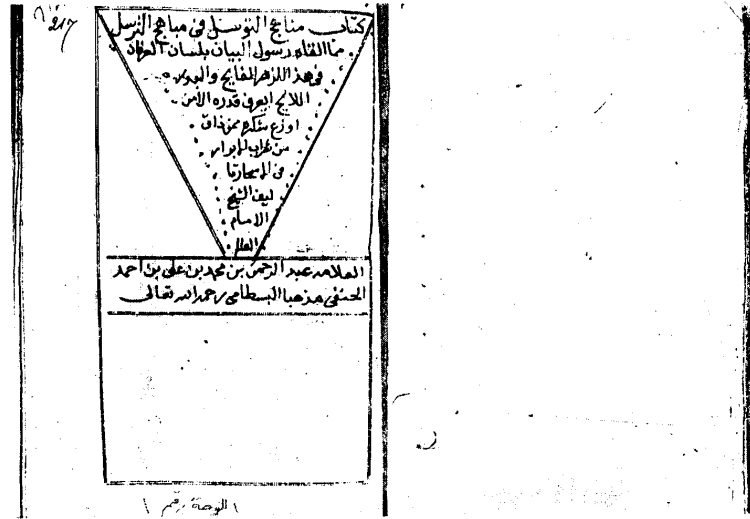 217
كتاب مناهج التوسل في مباهج الترسل
مما القاه رسول البيان بلسان العرفان
في هذا الزهر الفايح والبدر
اللايح لا يعرف قدره الا من
اوزع شكره ممن ذاق
من شراب الابرار
في الاسحار تا
ليف الشيخ
الامام
العالم
العلامه عبد الرحمن بن محمد بن علي بن احمد
الحنفي مذهبا البسطامي رحمه الله تعالى
اللوحة رقم ١